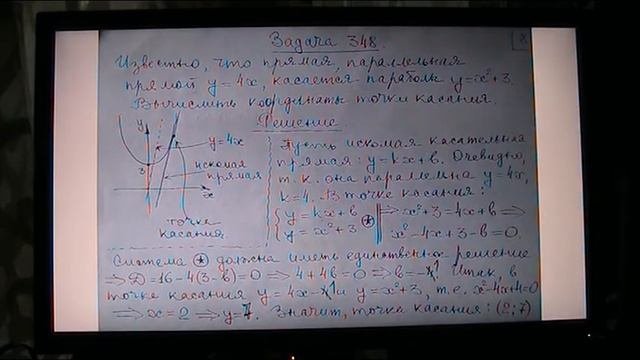 Задача 348.
Известно, что прямая, параллельная
прямой y = 4x, касается параболы y = x² + 3.
Вычислить координаты точки касания.
Решение
y
y = 4x
3
искомая
прямая
x
точка
касания.
Пусть искомая касательная
прямая: y = kx + b. Очевидно,
т.к. она параллельна y = 4x,
k = 4. В точке касания:
{ y = kx + b
y = x² + 3 ⊛ ⇒ x² + 3 = 4x + b ⇒
x² - 4x + 3 - b = 0.
Система ⊛ должна иметь единственное решение
⇒ D = 16 - 4(3 - b) = 0 ⇒ 4 + 4b = 0 ⇒ b = -1. Итак, в
точке касания y = 4x - 1 и y = x² + 3, т.е. x² - 4x + 4 = 0
⇒ x = 2 ⇒ y = 7. Значит, точка касания: (2; 7)